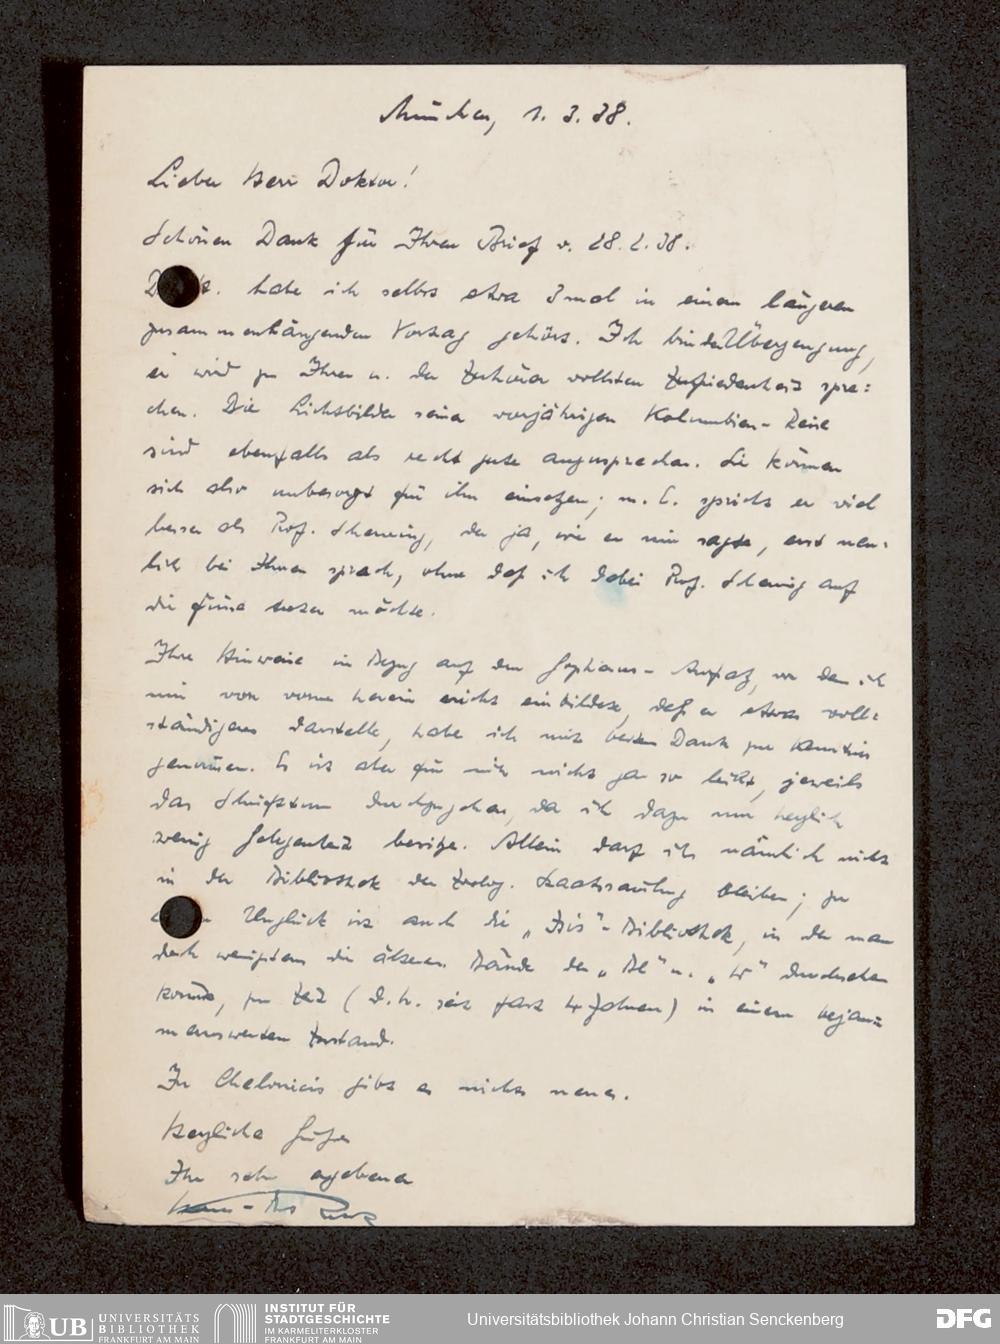 München, 1.3.38.
Lieber Herr Doktor!
Schönen Dank für Ihren Brief v. 28.2.38.
habe ich selbst etwa 3mal in einem längeren
zusammenhängenden Vortrag gehört. Ich bin der Überzeugung,
er wird zu Ihrer u. der Zuhörer vollsten Zufriedenheit spre=
chen. Die Lichtbilder seiner vorjährigen Kolumbien-Reise
sind ebenfalls als recht gute anzusprechen. Sie können
sich also unbesorgt für ihn einsetzen; m. E. spricht er viel
besser als Prof. der ja, wie er mir sagte, erst neu=
lich bei Ihnen sprach, ohne daß ich dabei Prof. auf
die Füsse treten möchte.
Ihre Hinweise in Bezug auf den Gopherus-Aufsatz, von dem ich
mir von vorne herein nicht einbildete, daß er etwas voll=
ständigeres darstelle, habe ich mit bestem Dank zur Kenntnis
genommen. Es ist aber für mich nicht ganz so leicht, jeweils
das Schrifttum durchzugehen, da ich dazu nur herzlich
wenig Gelegenheit besitze. Allein darf ich nämlich nicht
in der Bibliothek der Zoolog. Staatssammlung bleiben; zu
Unglück ist auch die „Isis"-Bibliothek, in der man
doch wenigstens die älteren Bände der „Bl" u. „W" durchsehen
konnte, zur Zeit (d.h. seit fast 4 Jahren) in einem bejam=
mernswerten Zustand.
In Cheloniers gibt es nichts neues.
Herzliche Grüße
Ihr sehr ergebener
UB UNIVERSITÄTS
BIBLIOTHEK
FRANKFURT AM MAIN
INSTITUT FÜR
STADTGESCHICHTE
IM KARMELITERKLOSTER
FRANKFURT AM MAIN
Universitätsbibliothek Johann Christian Senckenberg
DFG